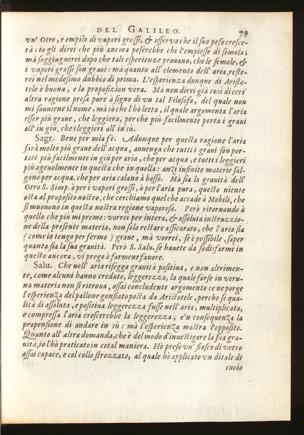 DEL GALILEO. 79
vn' Otro, e empilo di vapori grossi, & osserva che il suo peso cresce-
rà: io gli direi che più ancora peserebbe chi l'empiesse di semola;
mà soggiugnerei dopo che tali esperienze prouano, che le semole, &
i vapori grossi son graui: mà quanto all'elemento dell'aria, reste-
rei nel medesimo dubbio di prima. L'esperienza dunque di Aristo-
tele è buona, e la proposizion vera. Mà non direi già così di cert'
altra ragione presa pure à signo di vn tal Filosofo, del quale non
mi souuiene il nome, mà sò che l'hò letta, il quale argomenta l'aria
esser più graue, che leggiera, perche più facilmente porta i graui
all'in giù, che i leggieri all'in sù.
Sagr. Bene per mia fè. Adunque per questa ragione l'aria
sarà molto più graue dell'acqua, auuenga che tutti i graui son por-
tati più facilmente in giù per aria, che per acqua, e tutti i leggieri
più ageuolmente in questa che in quella: anzi infinite materie sal-
gono per acqua, che per aria calano à basso. Mà sia la grauità dell'
Otro S. Simp. ò per i vapori grossi, ò per l'aria pura, questo niente
osta al proposito nostro, che cerchiamo quel che accade à Mobili, che
si muouono in questa nostra regione vaporosa. Però ritornando à
quello che più mi preme: vorrei per intera, & assoluta instruzzio-
ne della presente materia, non solo restare assicurato, che l'aria sia
(come io tengo per fermo) graue, mà vorrei, se è possibile, saper
quanta sia la sua grauità. Però S. Salu. se hauete da sodisfarmi in
questo ancora, vi prego à farmene fauore.
Salu. Che nell'aria risegga grauità positiua, e non altrimen-
te, come alcuni hanno creduto, leggerezza, la quale forse in veru-
na materia non si ritroua, assai concludente argomento ce ne porge
l'esperienza del pallone gonfiato posta da Aristotele, perche se qua-
lità di assoluta, e positiua leggerezza fusse nell'aria, multiplicata,
e compressa l'aria crescerebbe la leggerezza, e'n consequenza la
propensione di andare in sù: mà l'esperienza mostra l'opposito.
Quanto all'altra domanda, che è del modo d'inuestigare la sua gra-
uità, io l'hò praticato in cotal maniera. Hò preso vn fiasco di vetro
assai capace, e col collo strozzato, al quale hò applicato vn ditale di
cuoio